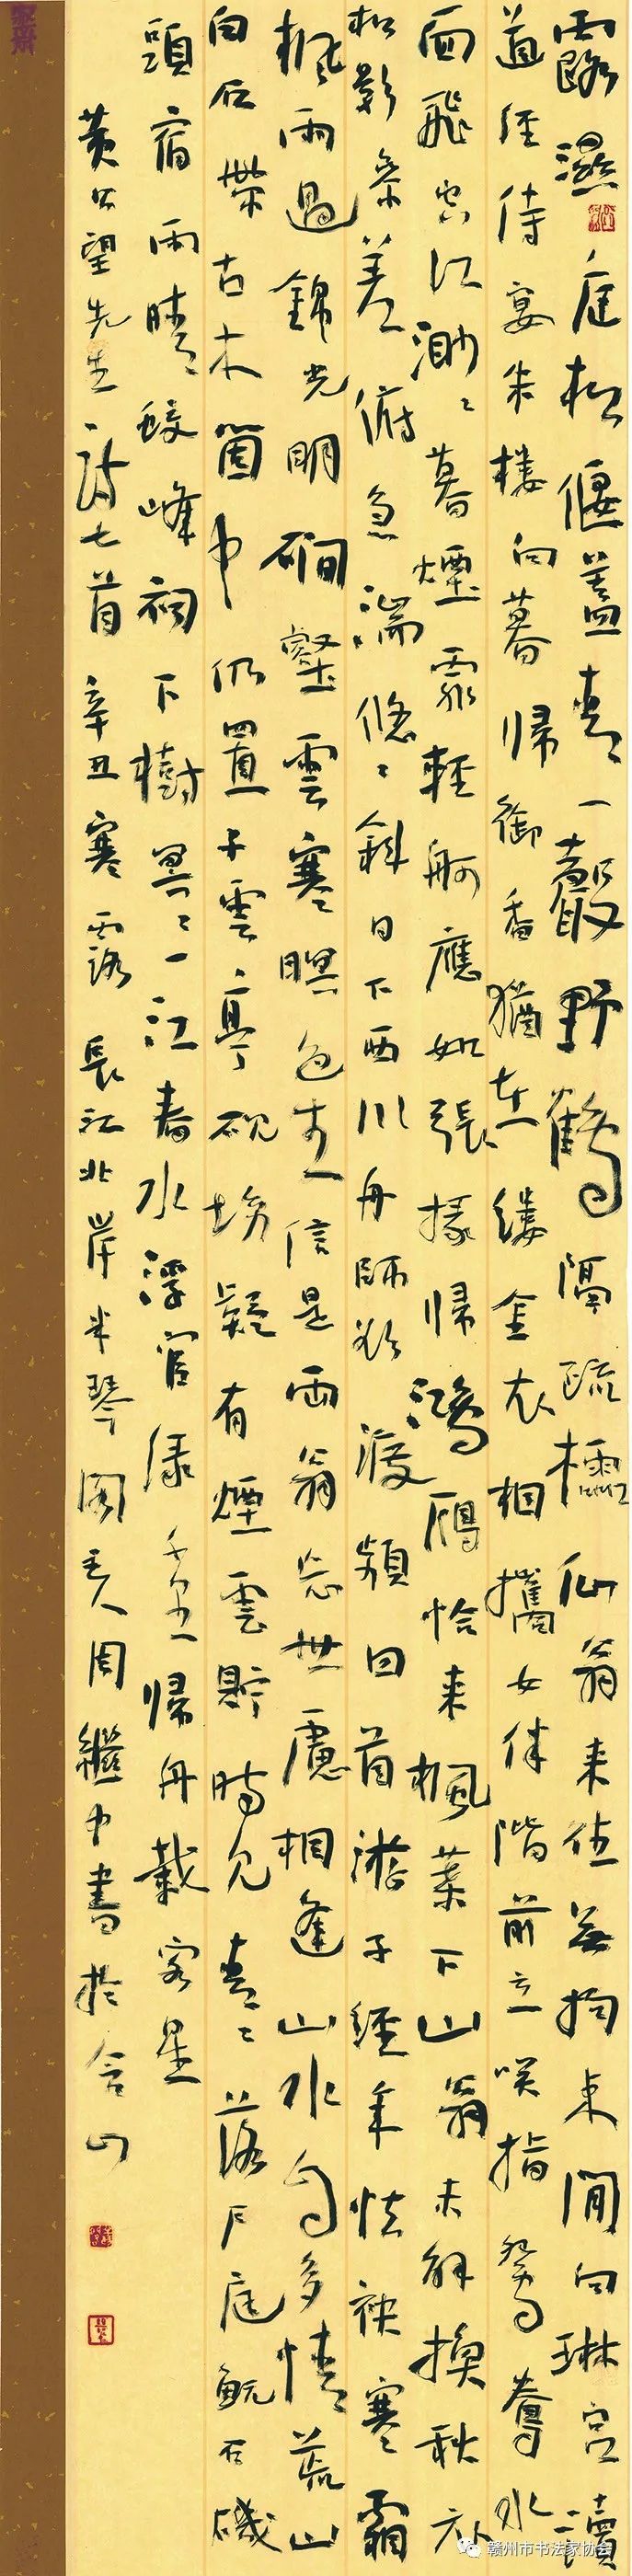 露濕庭松偃蓋青一聲野鶴隔疏櫺仙翁來往無拘束閒向琳宮讀
道經侍宴朱樓向暮歸御香猶在縷金衣相攜女伴階前立咲指鴛鴦水
面飛空江渺渺暮煙霏輕舸應如張掾歸鴻鴈恰來楓葉下山翁未解換秋衣
松影參差俯急湍悠悠斜日下西川舟師欲渡頻回首游子經年怯袂寒霜
楓雨過錦光明磵壑雲寒暝色生信是兩翁忘世慮相逢山水自多情荒山
白石帶古木箇中仍置子雲亭硯坳疑有煙雲貯時見青青落戶庭魷石磯
頭宿雨晴蛟峰祠下樹冥冥一江春水浮官綠千里歸舟載客星
黄公望先生詩七首辛丑寒露長江北岸琴閣主人周繼中書於含山
赣州市书法家协会